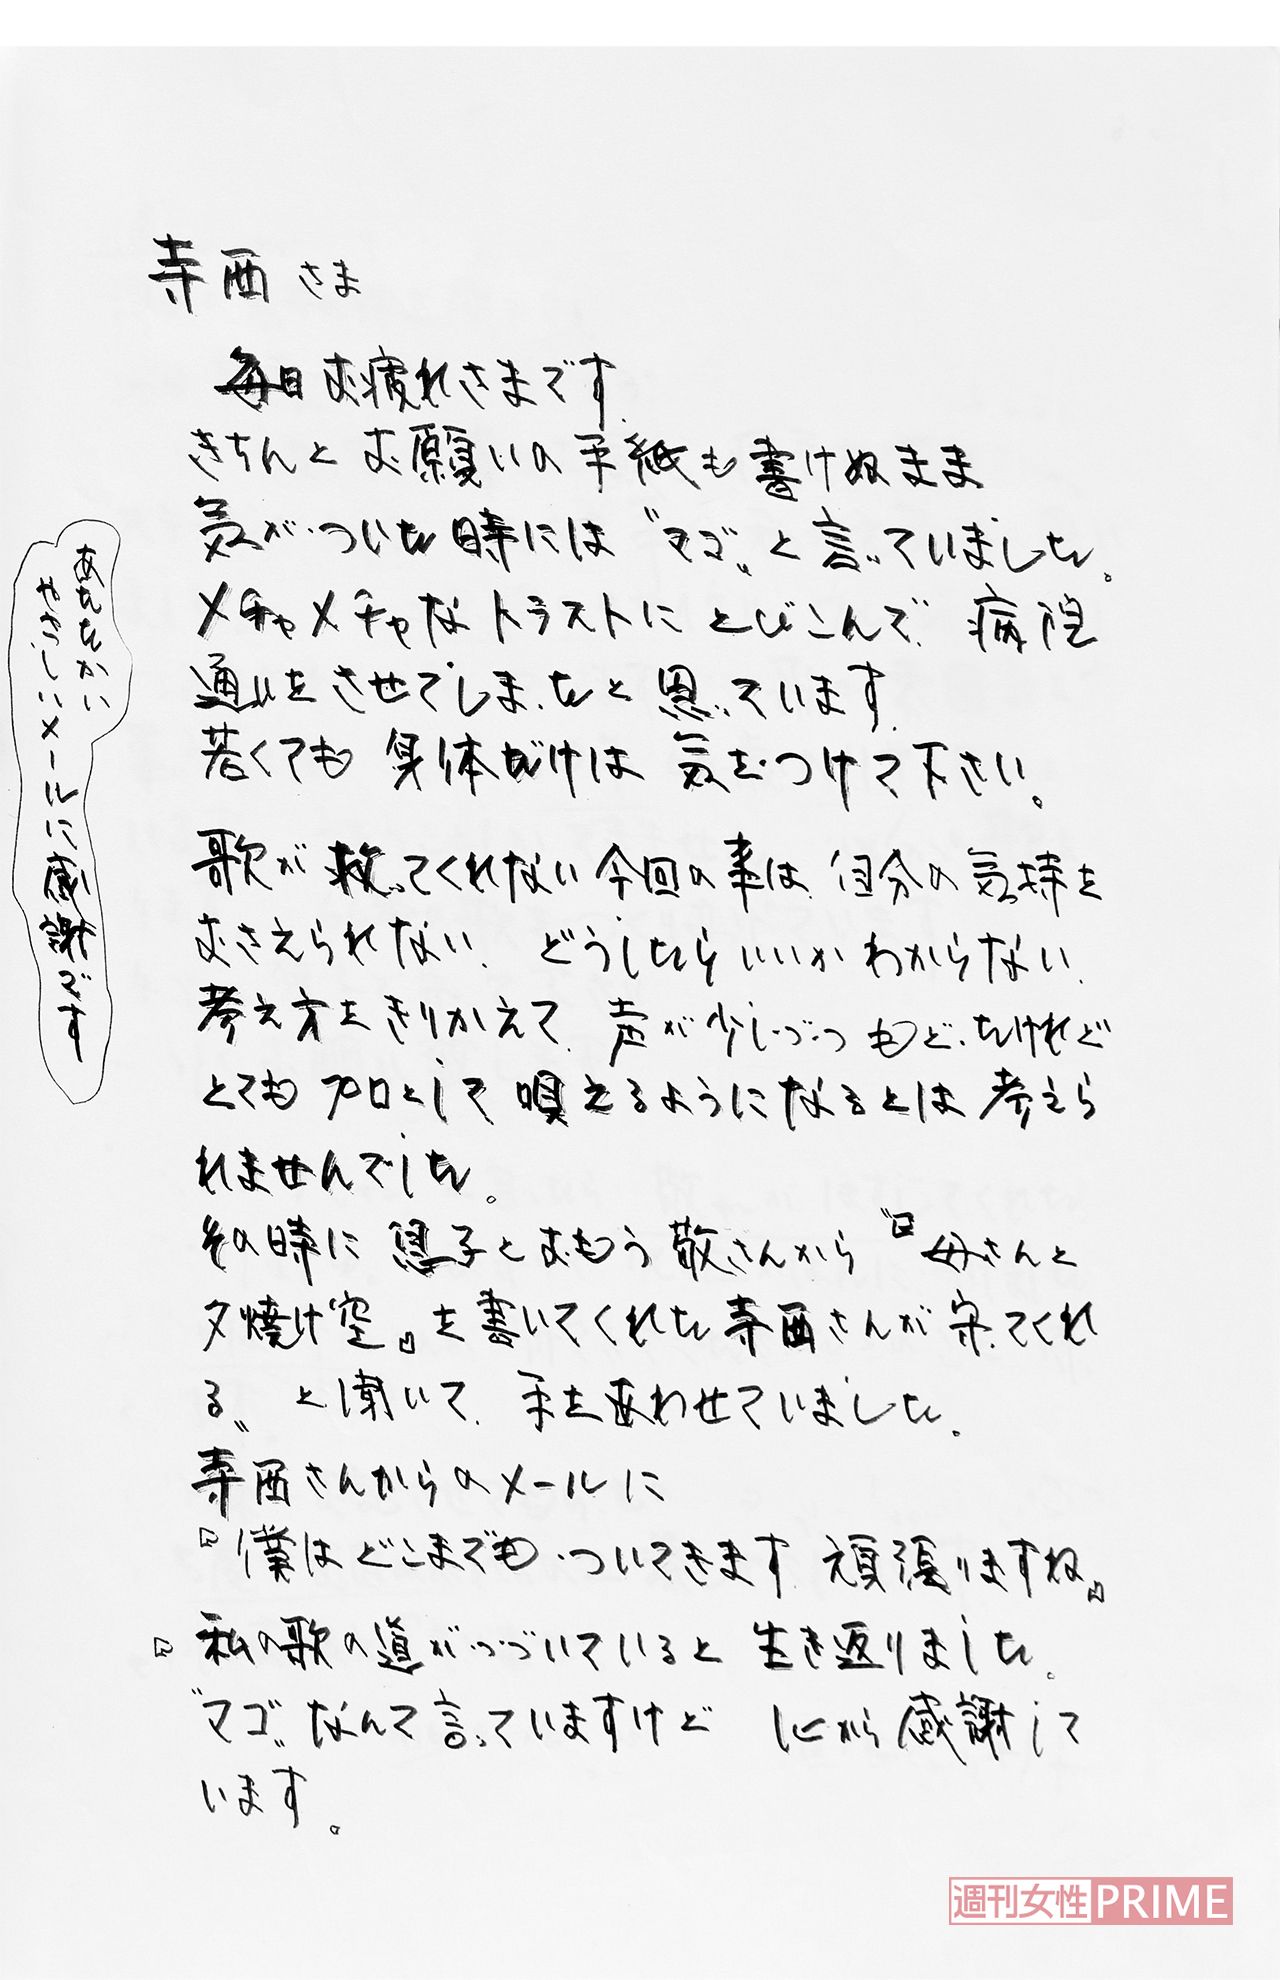 寺西さま
毎日お疲れさまです
きちんと お願いの手紙も書けぬまま
気がついた時には〝マゴ〟と言っていました。
メチャメチャなトラストに とびこんで 病院
通いをさせてしまったと思っています
若くても 身体だけは 気をつけて下さい。
歌が救ってくれない今回の事は 自分の気持を
おさえられない どうしたらいいかわからない
考え方をきりかえて 声が少しづつもどったけれど
とてもプロとして唄えるようになるとは考えら
れませんでした。
その時に息子とおもう敬さんから〝『母さんと
夕焼け空』を書いてくれた寺西さんが守ってくれ
る〟 と聞いて 手をあわせていました。
寺西さんからのメールに
『僕はどこまでもついてきます 頑張りますね』
『私の歌の道がつづいていると 生き返りました。
〝マゴ〟なんて言っていますけど 心から感謝して
います。
あたたかい
やさしいメールに感謝です
週刊女性PRIME